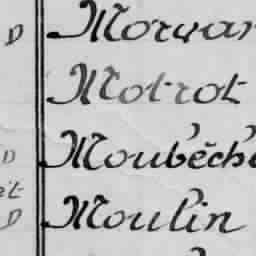 D Morvan
Motrot
D Moubêche
et
D Moulin